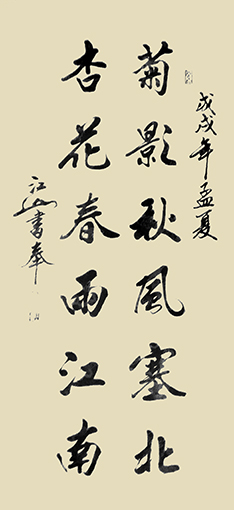 戊戌年孟夏
菊影秋風塞北
杏花春雨江南
江山書奉